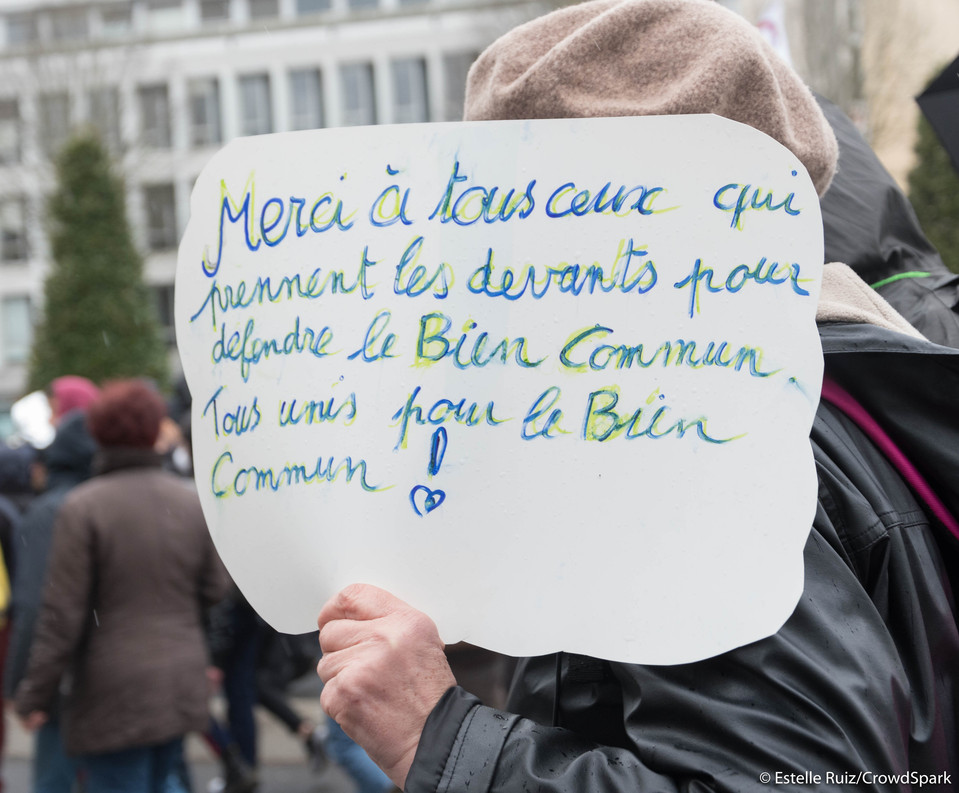 Merci à tous ceux qui
prennent les devants pour
défendre le Bien Commun.
Tous unis pour le Bien
Commun !
© Estelle Ruiz/CrowdSpark